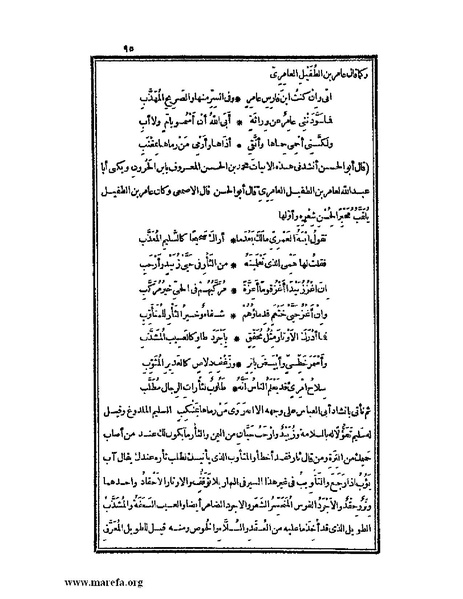 ٩٥
وكما قال عامر بن الطفيل العامريّ
انى وان كنت ابن فارس عامر * وفى السرّ منها والصريح المهذّب
فما سوّدتنى عامر عن وراثة * أبى الله أن أسمو بأم ولا أب
ولكننى أحمى حماها وأتقى * أذاها وأرمى من رماها بمقنب
(قال أبو الحسن) أنشدنى هذه الابيات محمد بن الحسن المعروف بابن الحرون ويكنى أبا
عبد الله لعامر بن الطفيل العامرى قال أبو الحسن قال الاصمعى وكان عامر بن الطفيل
يلقب محبرا لحسن شعره وأولها
تقول ابنة العمرىّ مالك بعدما * أراك صحيحا كالسليم المعذّب
فقلت لها همى الذى تعلمينه * من الثأر فى حيّى زبيد وأرحب
ان اغز زبيدا أغز قوما أعزّة * مركّبهم فى الحى خير مركّب
وان أغز حيّى خثعم فدماؤهم * شفاء وخير الثأر للمتأوّب
فما أدرك الاوتار مثل محقّق * بأجرد طاو كالعسيب المشذّب
وأسمر خطىّ وأبيض باتر * وزغف دلاص كالغدير المثوّب
سلاح امرئ قد يعلم الناس أنّه * طلوب لثأرات الرجال مطلّب
ثم نأتى بانشاد أبى العباس على وجهه الا أنه روى من رماها بمنكب السليم الملدوغ وقيل
له سليم تفؤّلا له بالسلامة وزبيد وأرحب حيّان من اليمن والثأر ما يكون لك عند من أصاب
حميمك من الترة ومن قال ثار فقد أخطأ والمتأوب الذى يأتيك لطلب ثأره عندك يقال آب
يؤب اذا رجع والتأويب فى غير هذا السير فى النهار بلا توقف والاوتار الاحقاد واحدها
وتر وحقد والاجرد الفرس المتحسر الشعر والاجرد الضامر أيضا والعسيب السعفة والمشذب
الطويل الذى قد أخذ ما عليه من العقد والسلاء والخوص ومنه قيل للطويل المعرّق
www.marefa.org